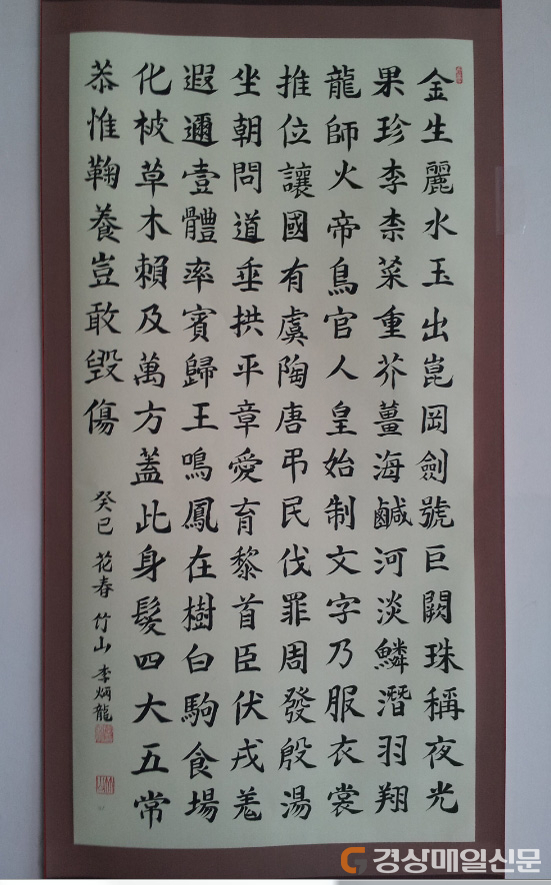 金生麗水玉出崑岡劍號巨闕珠稱夜光
果珍李柰菜重芥薑海鹹河淡鱗潛羽翔
龍師火帝鳥官人皇始制文字乃服衣裳
推位讓國有虞陶唐弔民伐罪周發殷湯
坐朝問道垂拱平章愛育黎首臣伏戎羌
遐邇壹體率賓歸王鳴鳳在樹白駒食場
化被草木賴及萬方蓋此身髮四大五常
恭惟鞠養豈敢毀傷
癸巳 花春 竹山 李炳龍
경상매일신문